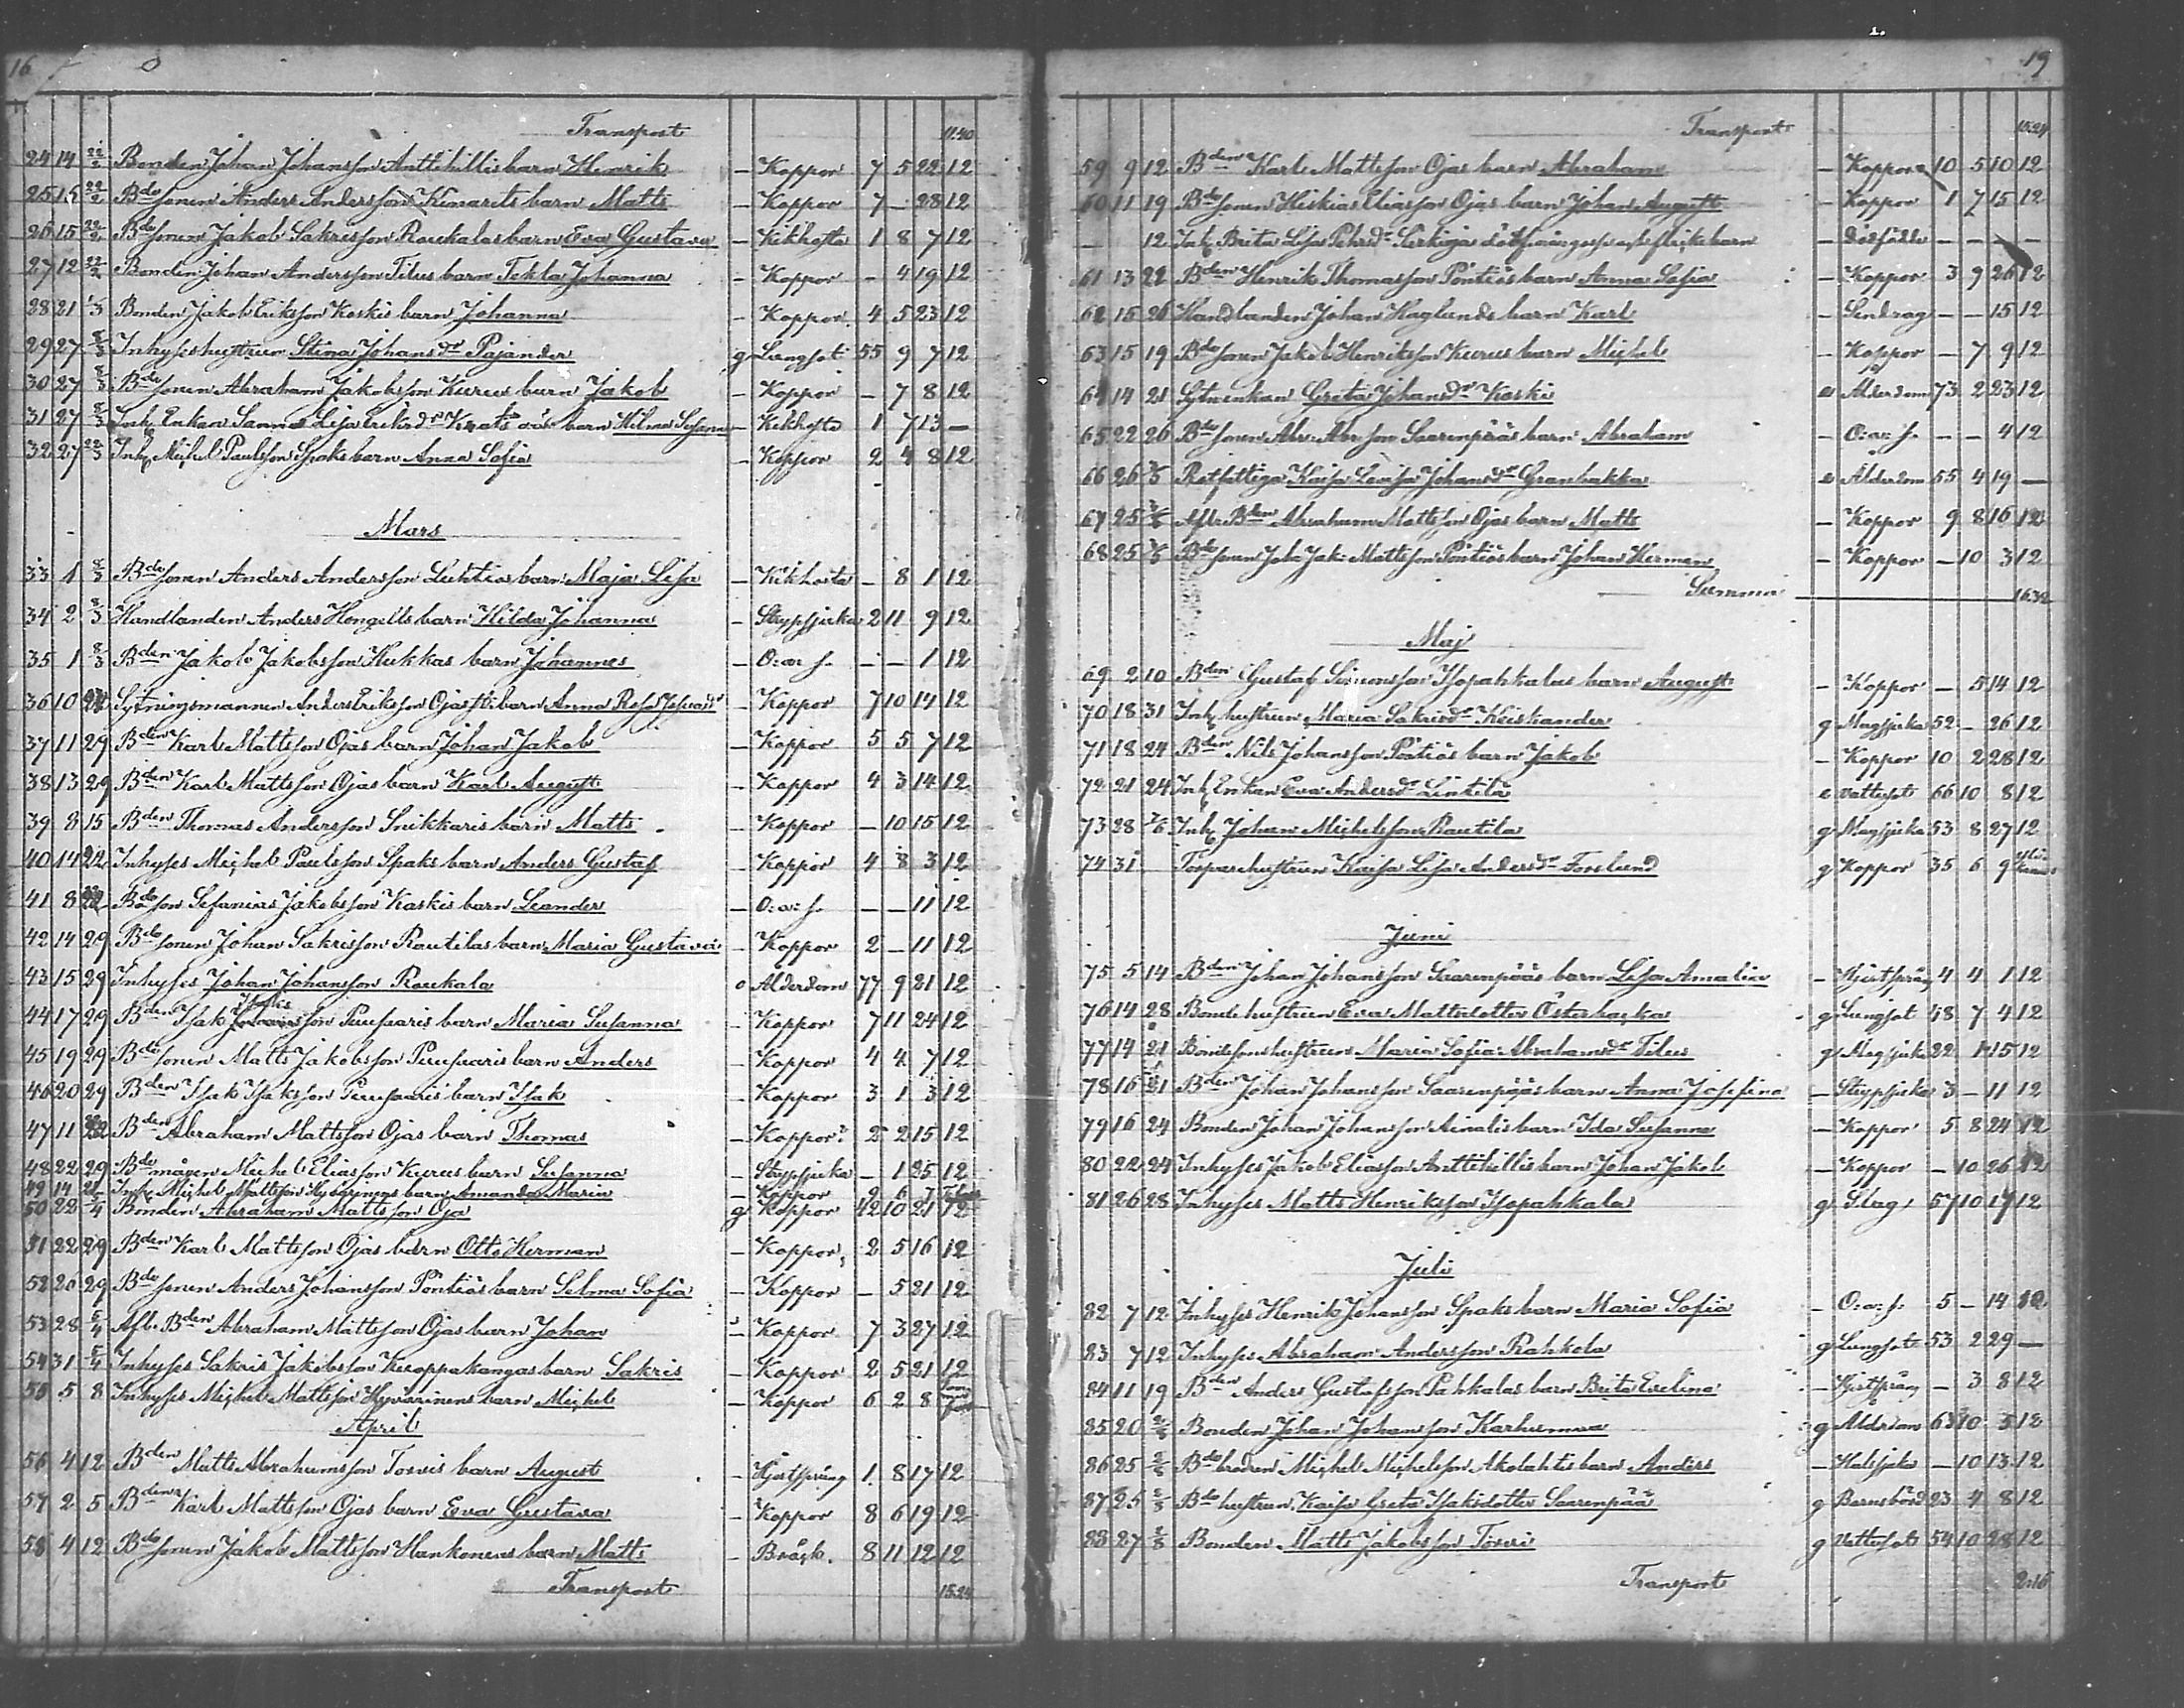 16
Transport 11:40
24 14 22/2 Bonden Johan Johansson Anttihillis barn Henrik – Koppor 7 5 22 12
25 15 22/2 Bdesonen Anders Andersson Kimarits barn Matts – Koppor 7 – 28 12
26 15 22/2 Bdesonen Jakob Sakrisson Raukalas barn Eva Gustava – Kikhosta 1 8 7 12
27 12 22/2 Bonden Johan Andersson Tilus barn Tekla Johanna – Koppor – 4 19 12
28 21 1/3 Bonden Jakob Eriksson Koskis barn Johanna – Koppor 4 5 23 12
29 27 8/3 Inhyseshustrun Stina Johansdr Pajander g Lungsot 55 9 7 12
30 27 8/3 Bdesonen Abraham Jakobsson Kurus barn Jakob – Koppor – 7 8 12
31 27 8/3 Inh Enkan Sanna Lisa Eriksdr barn Hilma Susanna – Kikhosta 1 7 13 –
32 27 22/3 Inh Michel Paulsson Spaks barn Anna Sofia – Koppor 2 4 8 12
Mars
33 1 8/3 Bdesonen Anders Andersson Luhtias barn Maja Lisa – Kikhosta – 8 1 12
34 2 8/3 Handlanden Anders Hongells barn Hilda Johanna – Strypsjuka 2 11 9 12
35 1 8/3 Bden Jakob Jakobsson Kukkas barn Johannes – O: as: s. – – 1 12
36 10 Sytningsmannen Anders Eriksson barn Anna – Koppor 7 10 14 12
37 11 29 Bden Karl Mattsson Ojas barn Johan Jakob – Koppor 5 5 7 12
38 13 29 Bden Karl Mattsson Ojas barn Karl August – Koppor 4 3 14 12
39 8 15 Bden Thomas Andersson Snikkaris barn Matts – Koppor – 10 15 12
40 14 22 Inhyses Michel Paulsson Spaks barn Anders Gustaf – Koppor 4 8 3 12
41 8 Bdeson Sefanias Jakobsson Kaskis barn Leander – O: as: s. – – 11 12
42 14 29 Bdesonen Johan Sakrisson Rautilas barn Maria Gustava – Koppor 2 – 11 12
43 15 29 Inhyses Johan Johansson Raukala e Ålderdom 77 9 21 12
44 17 29 Bden Isak Isaksson Puusaaris barn Maria Susanna – Koppor 7 11 24 12
45 19 29 Bdesonen Matts Jakobsson Puusaaris barn Anders – Koppor 4 4 7 12
46 20 29 Bden Isak Isaksson Puusaaris barn Isak – Koppor 3 1 3 12
47 11 Bden Abraham Mattsson Ojas barn Thomas – Koppor 2 2 15 12
48 22 29 Bdemågen Michel Eliasson Kurus barn Susanna – Strypsjuka – 1 25 12
49 14 Inh Michel Mattsson Hyvärinens barn Amanda Maria – Koppor 2 6 7
50 22 5/4 Bonden Abraham Mattsson Oja g Koppor 42 10 21 12
51 22 29 Bden Karl Mattsson Ojas barn Otto Herman – Koppor 2 5 16 12
52 26 29 Bdesonen Anders Johansson Pöntiös barn Selma Sofia – Koppor – 5 21 12
53 28 5/4 Afl. Bden Abraham Mattsson Ojas barn Johan – Koppor 7 3 27 12
54 31 5/4 Inhyses Sakris Jakobsson Kuoppakangas barn Sakris – Koppor 2 5 21 12
55 5 8 Inhyses Michel Mattsson Hyvärinens barn Michel – Koppor 6 2 8
April
56 4 12 Bden Matts Abrahamsson Torvis barn August – Hjertsprång 1 8 17 12
57 2 5 Bden Karl Mattsson Ojas barn Eva Gustava – Koppor 8 6 19 12
58 4 12 Bdesonen Jakob Mattsson Hankonens barn Matts – Bråck 8 11 12 12
Transport 15:24
19
Transport 15:24
59 9 12 Bden Karl Mattsson Ojas barn Abraham – Koppor 10 5 10 12
60 11 19 Bdesonen Hiskias Eliasson Ojas barn Johan August – Koppor 1 7 15 12
– 12 Inh Brita Lisa Pehrsdr flickebarn – dödfödde – – – –
61 13 22 Bden Henrik Thomasson Pöntiös barn Anna Sofia – Koppor 3 9 26 12
62 15 26 Handlanden Johan Haglunds barn Karl – Sendrag – – 15 12
63 15 19 Bdesonen Jakob Henriksson Kurus barn Michel – Koppor – 7 9 12
64 14 21 Sytnenkan Greta Johansdr Kaski e Ålderdom 73 2 23 12
65 22 26 Bdesonen Abr: Abrsson Saarenpääs barn Abraham – O: as: s. – – 4 12
66 26 3/5 Rotfattiga Kaisa Lovisa Johansdr Granbakka e Ålderdom 55 4 19 –
67 25 3/5 Afl. Bden Abraham Mattsson Ojas barn Matts – Koppor 9 8 16 12
68 25 3/5 Bdesonen Joh: Jak: Mattsson Pöntiös barn Johan Herman – Koppor – 10 3 12
Summa 16:32
Maj
69 2 10 Bden Gustaf Simonsson Isopahkalas barn August – Koppor – 5 14 12
70 18 31 Inh hustrun Maria Sakrisdr Keiskander g Magsjuka 52 – 26 12
71 18 24 Bden Nils Johansson Pöntiös barn Jakob – Koppor 10 2 28 12
72 21 24 Inh Enkan Eva Andersdr Lintilä e Vattusot 66 10 8 12
73 28 7/6 Inh Johan Michelsson Rautila g Magsjuka 53 8 27 12
74 31 Torparehustrun Kaisa Lisa Andersdr Forslund g Koppor 35 6 9
Juni
75 5 14 Bden Johan Johansson Saarenpääs barn Lisa Amalia – Hjertsprång 4 4 1 12
76 14 28 Bondehustrun Eva Mattsdotter Österbacka g Lungsot 48 7 4 12
77 14 21 Bondesonshustrun Maria Sofia Abrahamsdr Tilus g Magsjuka 22 1 15 12
78 16 21 Bden Johan Johansson Saarenpääs barn Anna Josefina – Strypsjuka 3 – 11 12
79 16 24 Bonden Johan Johansson Ainalis barn Ida Susanna – Koppor 5 8 24 12
80 22 24 Inhyses Jakob Eliasson Anttihillis barn Johan Jakob – Koppor – 10 26 12
81 26 28 Inhyses Matts Henriksson Isopahkala g Slag 57 10 17 12
Juli
82 7 12 Inhyses Henrik Johansson Spaks barn Maria Sofia – O: as: s. 5 – 14 12
83 7 12 Inhyses Abraham Andersson Rahkola g Lungsot 53 2 29 –
84 11 19 Bden Anders Gustafsson Pahkalas barn Brita Evelina – Hjertsprång – 3 8 12
85 20 2/8 Bonden Johan Johansson Karhumaa g Ålderdom 63 10 3 12
86 25 2/8 Bdebrodren Michel Michelsson Akolahtis barn Anders – Halssjuka – 10 13 12
87 25 2/8 Bdehustrun Kaisa Greta Isaksdotter Saarenpää g Barnsbörd 23 4 8 12
88 27 2/8 Bonden Matts Jakobsson Torvi g Vattusot 54 10 28 12
Transport 2:16